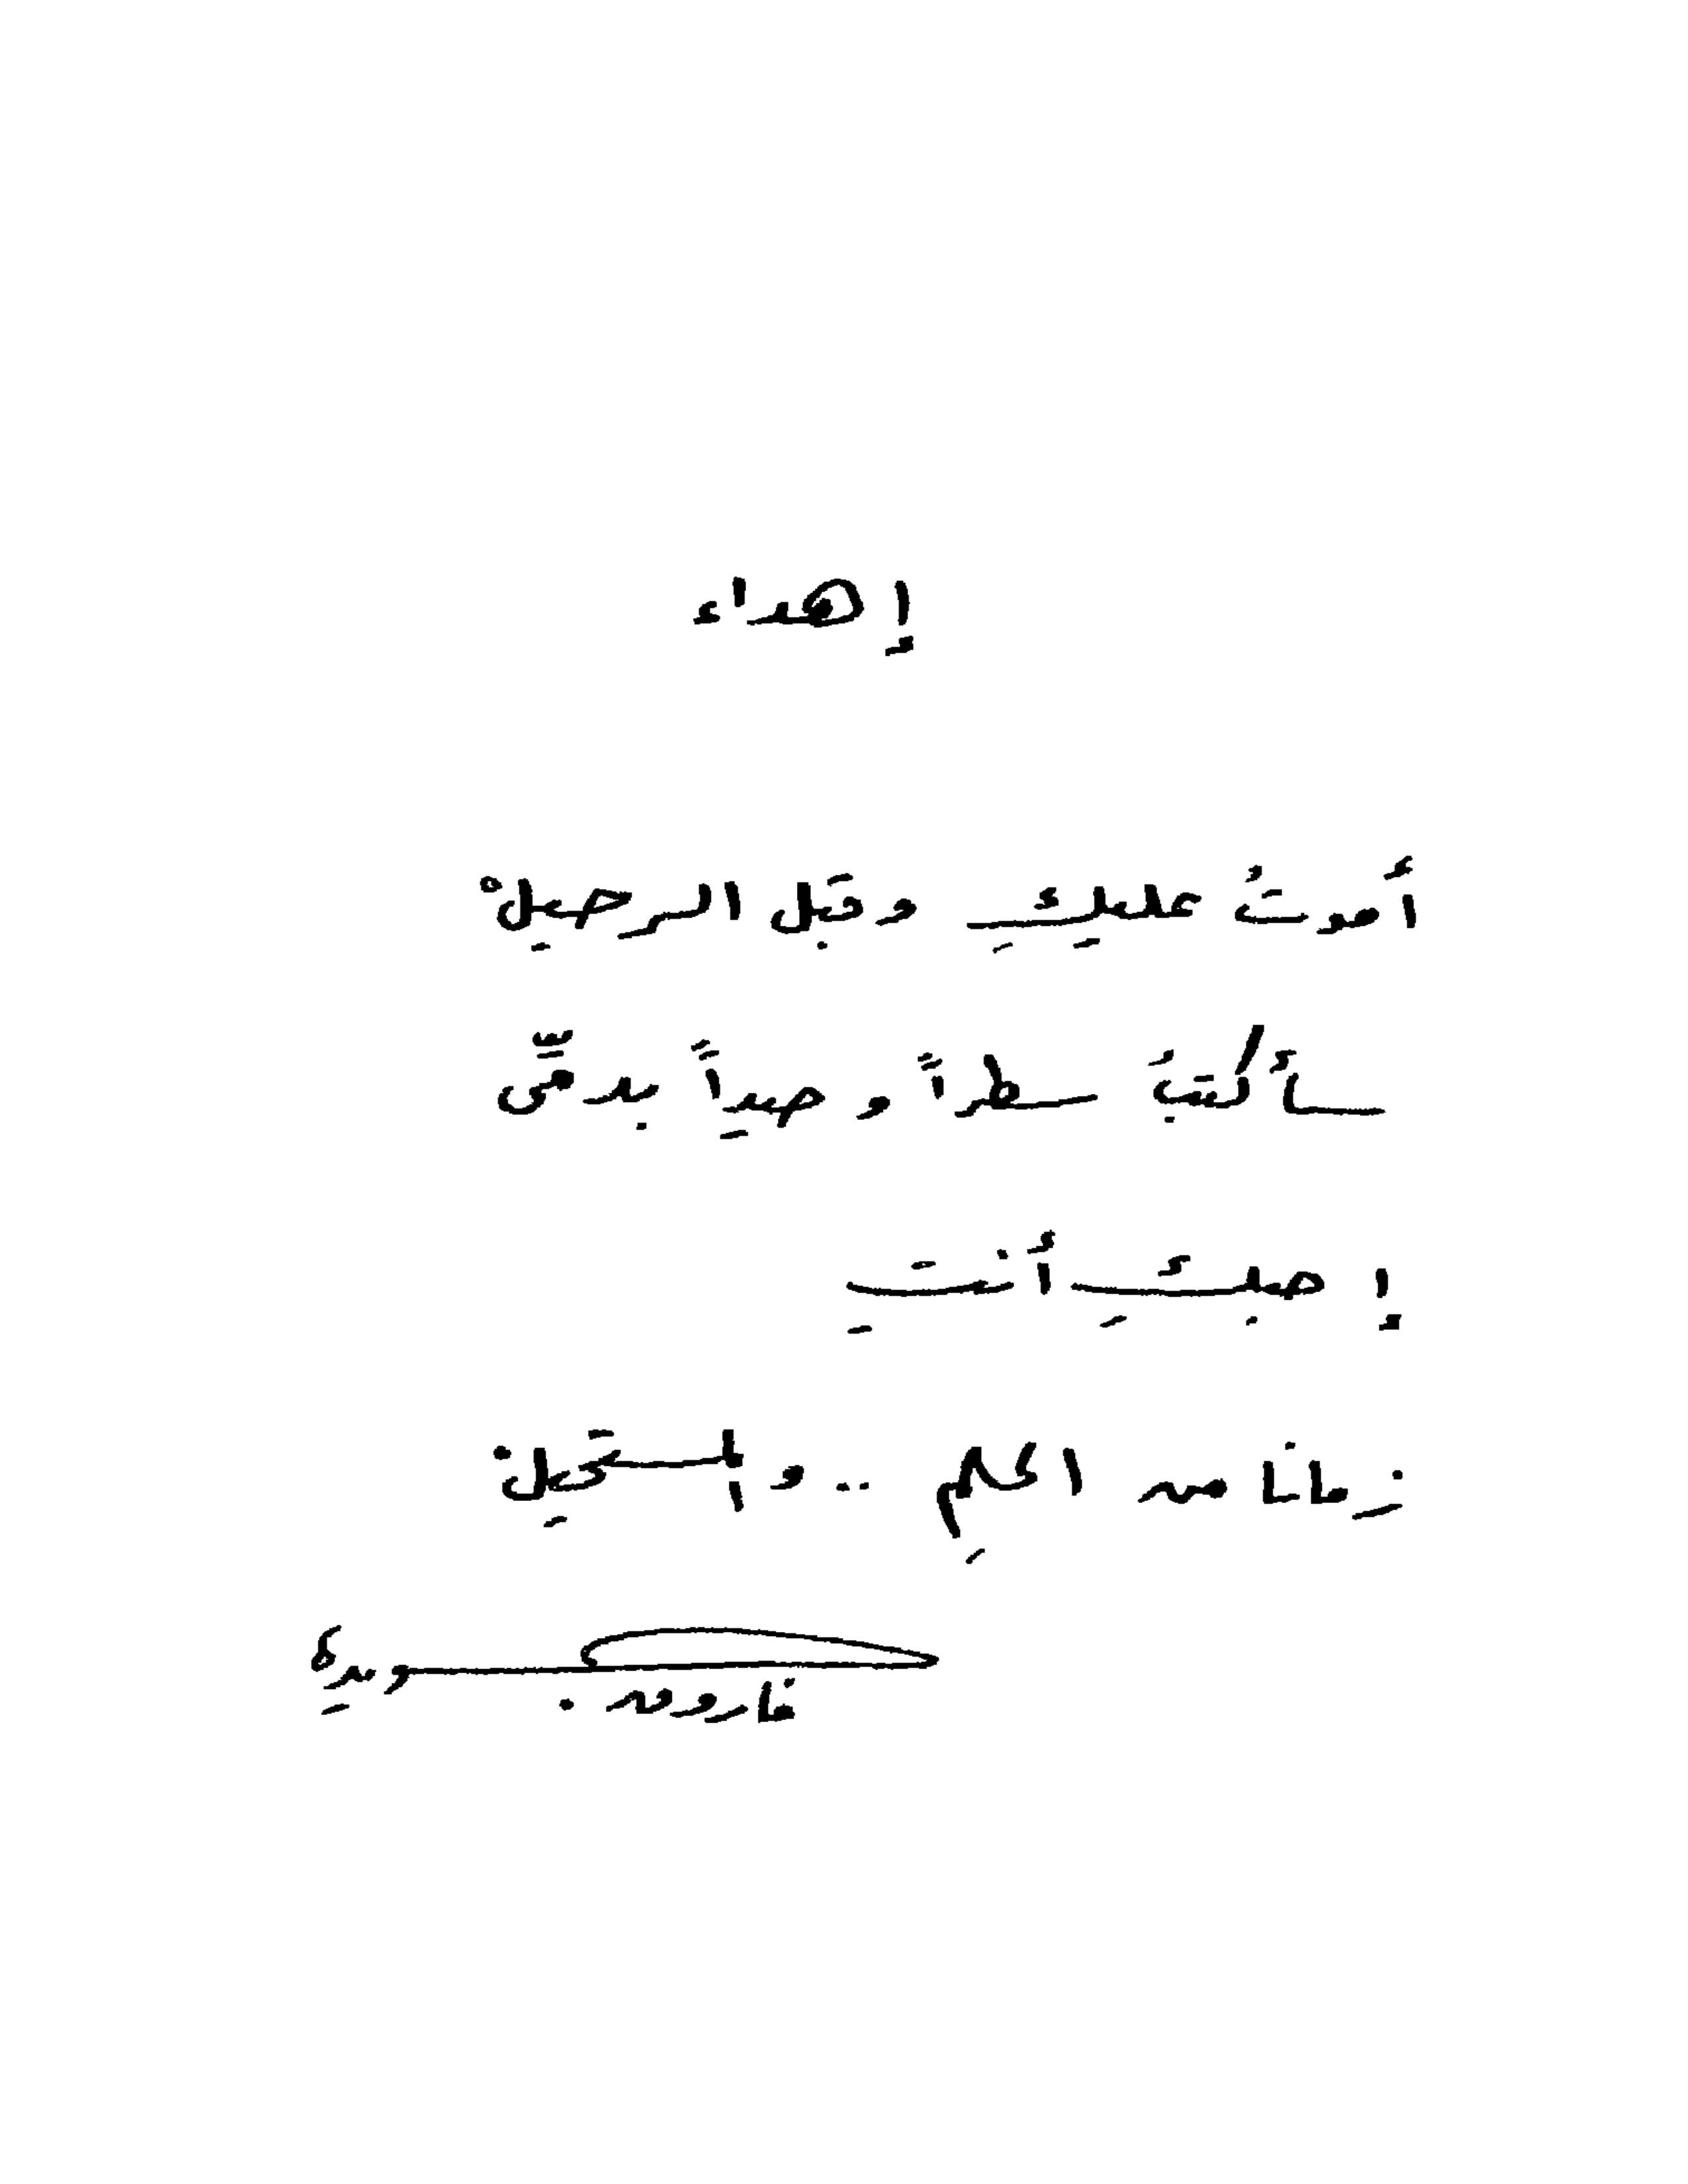 إهداء
أموتُ عليكِ وقبل الرحيلْ
سأكتبُ سطراً وحيداً بدمّى
أحبكِ أنتِ
زمانا من الحلمِ .. والمستحيلْ
فاروق جويدة